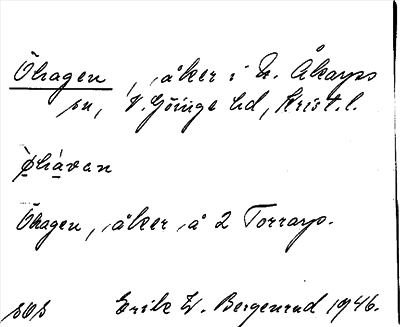 Öhagen, åker i N. Åkarps
sn, V. Göinge hd, Krist. l.
Öhagen, åker å 2 Torrarp.
SOS Erik W. Bergenrud 1946.